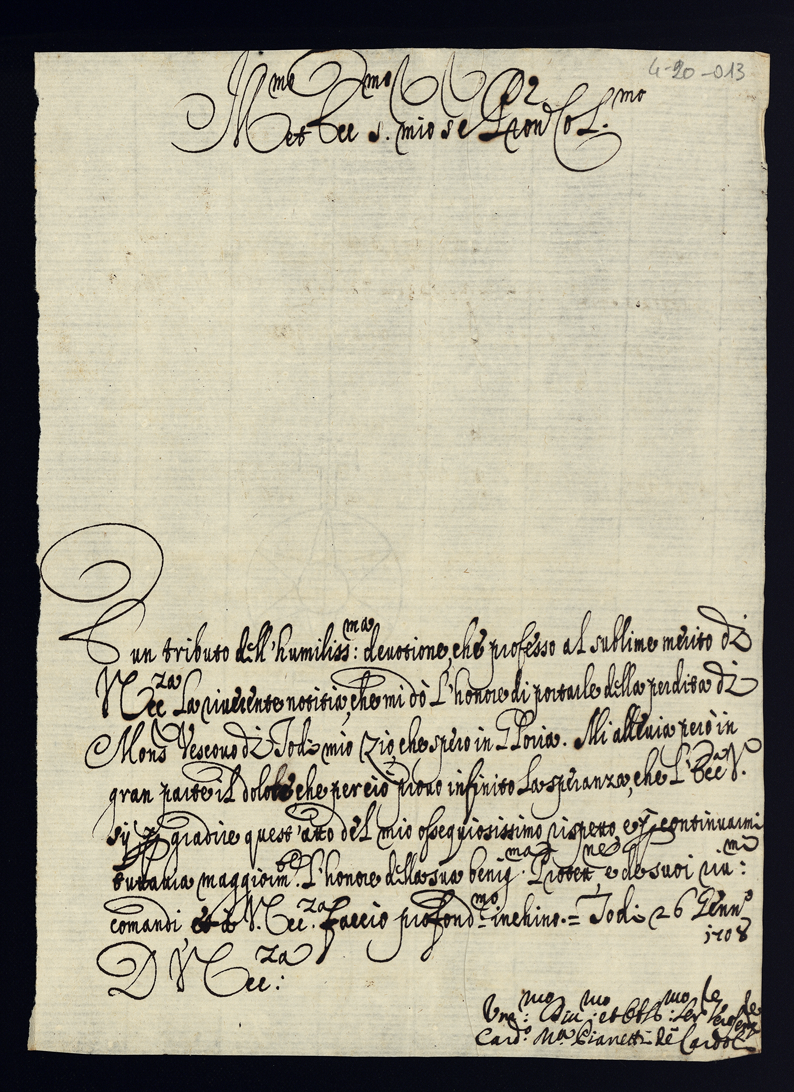 4-20-013
Ill.mo
et Ecc. s. mio se Pron Col.mo
È un tributo dell'humiliss:ma devotione, che professo al sublime merito di
V Ecc.za La riverente notitia, che mi dò L'honore di portarle della perdita di
Mons Vescovo di Todi mio Zio che spero in Gloria. Mi allevia però in
gran parte il dolore che perciò provo infinito La speranza, che L'Ecc.a V.
sij p gradire quest'atto del mio ossequiosissimo rispetto, e p continuarmi
tuttavia maggiorm.te L'honore della sua benig.ma Protett.ne e de suoi riv:mi
comandi et à V. Ecc.za faccio profond.mo inchino. = Todi 26 Genn.o
1708
D V Ecc.za:
Um:mo Div:mo et Obl:mo Ser
Card.